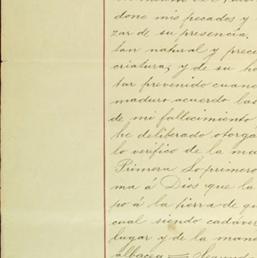 done mis pecados y
zar de su presencia,
tan natural y prec
criatura; y de su ho
tar prevenido cuan
maduro acuerdo las
de mi fallecimiento
he deliberado otorga
lo verifico de la ma
Primera Lo primero
ma á Dios que la
pó á la tierra de qu
cual siendo cadáver
lugar y de la mane
albacea